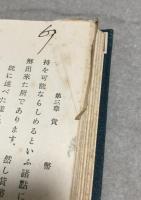 67
第三章 貨幣
持を可能ならしめるといふ諸點に
解出來た所であります。
既に述べた樣